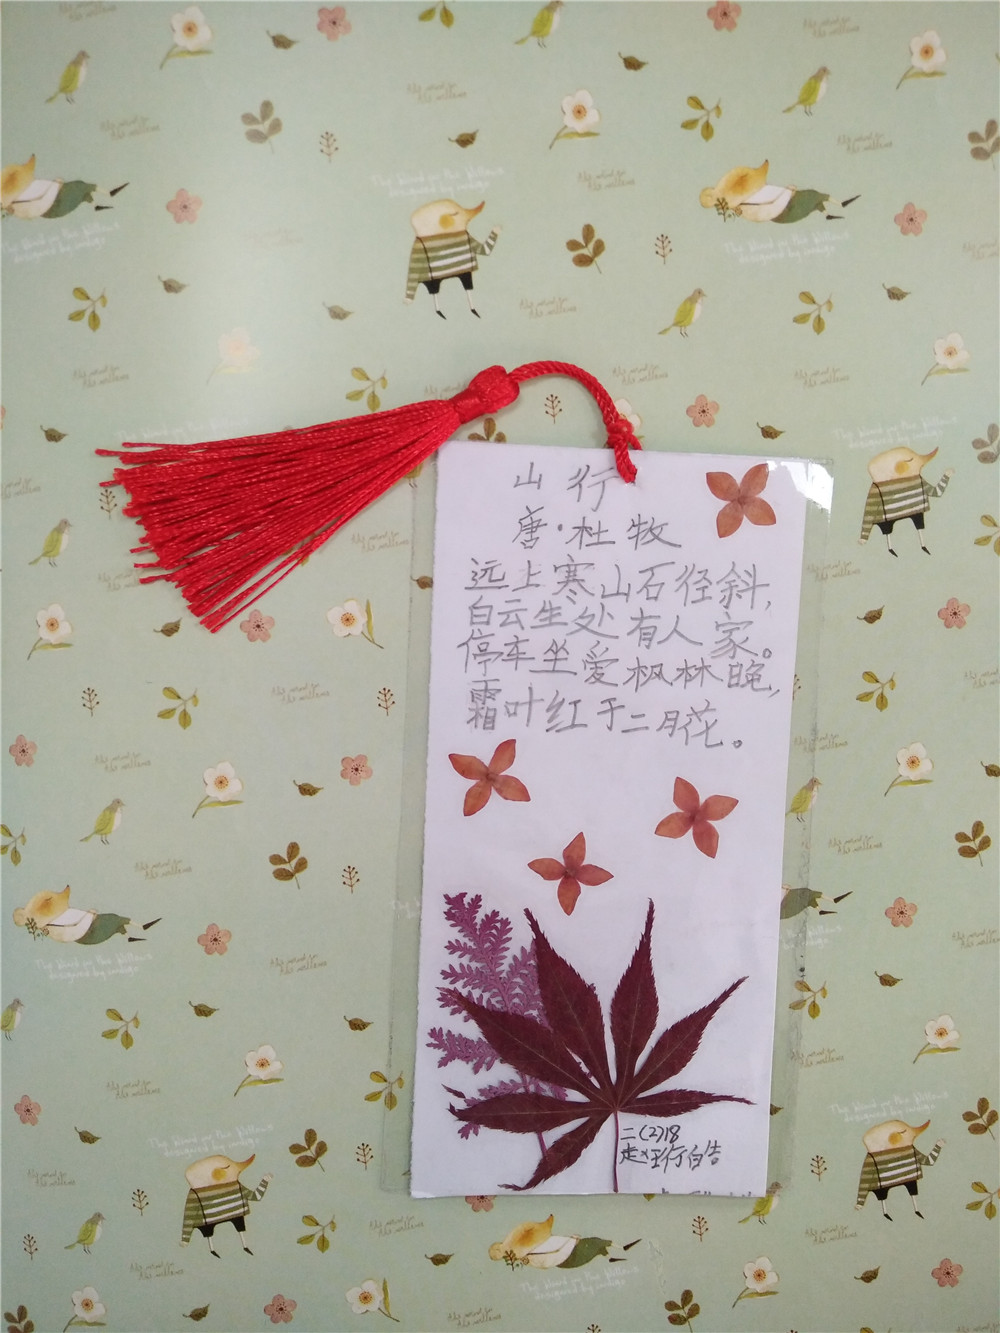 山行
唐·杜牧
远上寒山石径斜,
白云生处有人家。
停车坐爱枫林晚,
霜叶红于二月花。
二(2)18
The Wind in the Willows
designed by